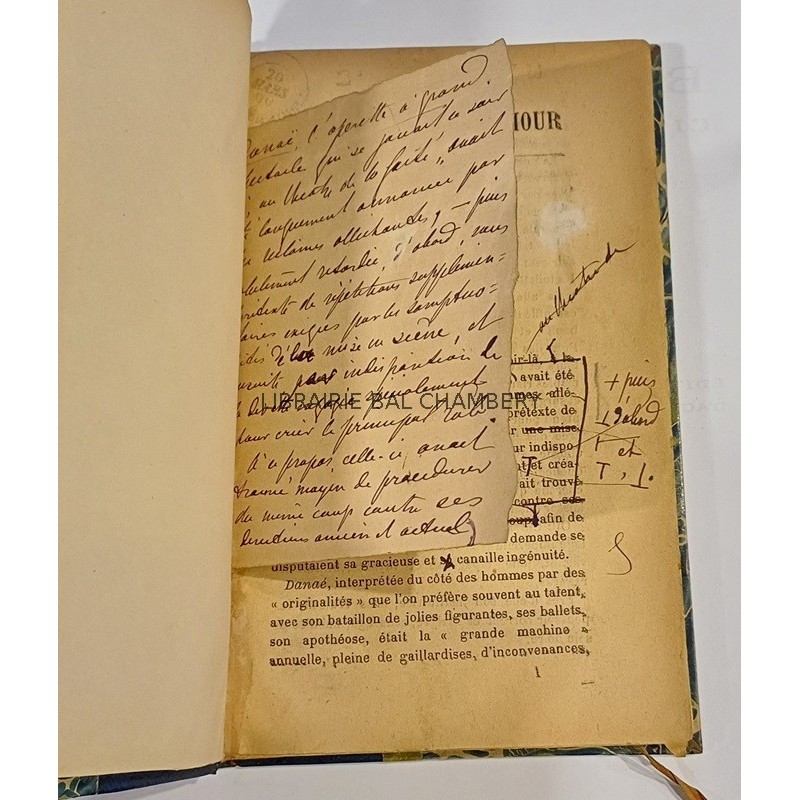 20
MARS
Danaë, l'opérette à grand
spectacle qui se jouait ce soir
au théâtre de la Gaîté, avait
été longuement annoncée par
des réclames alléchantes, — puis
retardée, d'abord, sous
prétexte de répétitions supplémen=
taires exigées par les somptuo=
sités de la mise en scène, et
ensuite par indisposition de
pour créer le principal rôle.
A ce propos, celle-ci avait
trouvé moyen de procédurer
du même coup contre ses
directeurs ancien et actuel,
MOUR
au théâtre de
oir-là, à la
avait été
mes allé-
prétexte de
r une mise
ur indispo
nt et créa-
ait trouvé
contre ses
coup afin de
demande se
+ puis
⊥ d'abord
T et
T, I.
disputaient sa gracieuse et sa canaille ingénuité.
Danaé, interprétée du côté des hommes par des
« originalités » que l'on préfère souvent au talent,
avec son bataillon de jolies figurantes, ses ballets,
son apothéose, était la « grande machine »
annuelle, pleine de gaillardises, d'inconvenances,
1
LIBRAIRIE BAL CHAMBERT